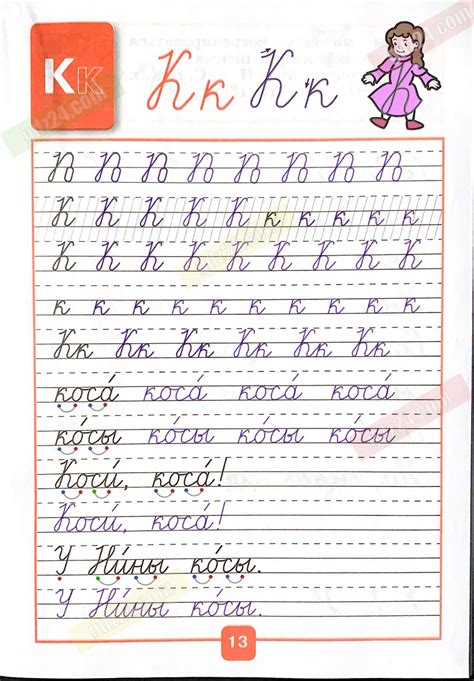 К к
Кк Кк
К К К К К к к к к к
К К К К К К К К К
к к к к к к к к к к
Кк Кк Кк Кк Кк Кк
коса́ коса́ коса́ коса́
ко́сы ко́сы ко́сы ко́сы
Коси́, коса́!
Коси́, коса́!
У Ни́ны ко́сы.
У Ни́ны ко́сы.
13